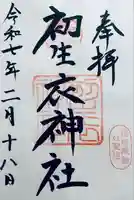 奉拝
初生衣神社
令和七年二月十八日